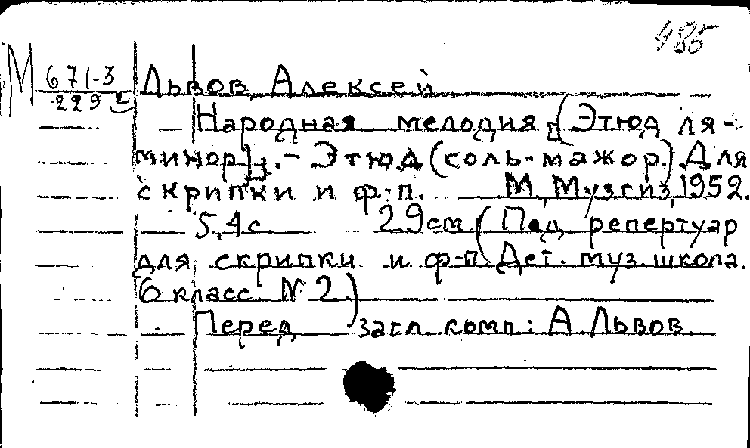 485
М 671-3
229 2
Львов, Алексей
Народная мелодия [(Этюд ля-
минор)]. - Этюд (соль-мажор.) Для
скрипки и ф-п. М., Музгиз, 1952.
5,4 с 29 см. (Пед. репертуар
для скрипки и ф-п. Дет. муз. школа.
6 класс. № 2)
Перед загл. комп.: А. Львов.